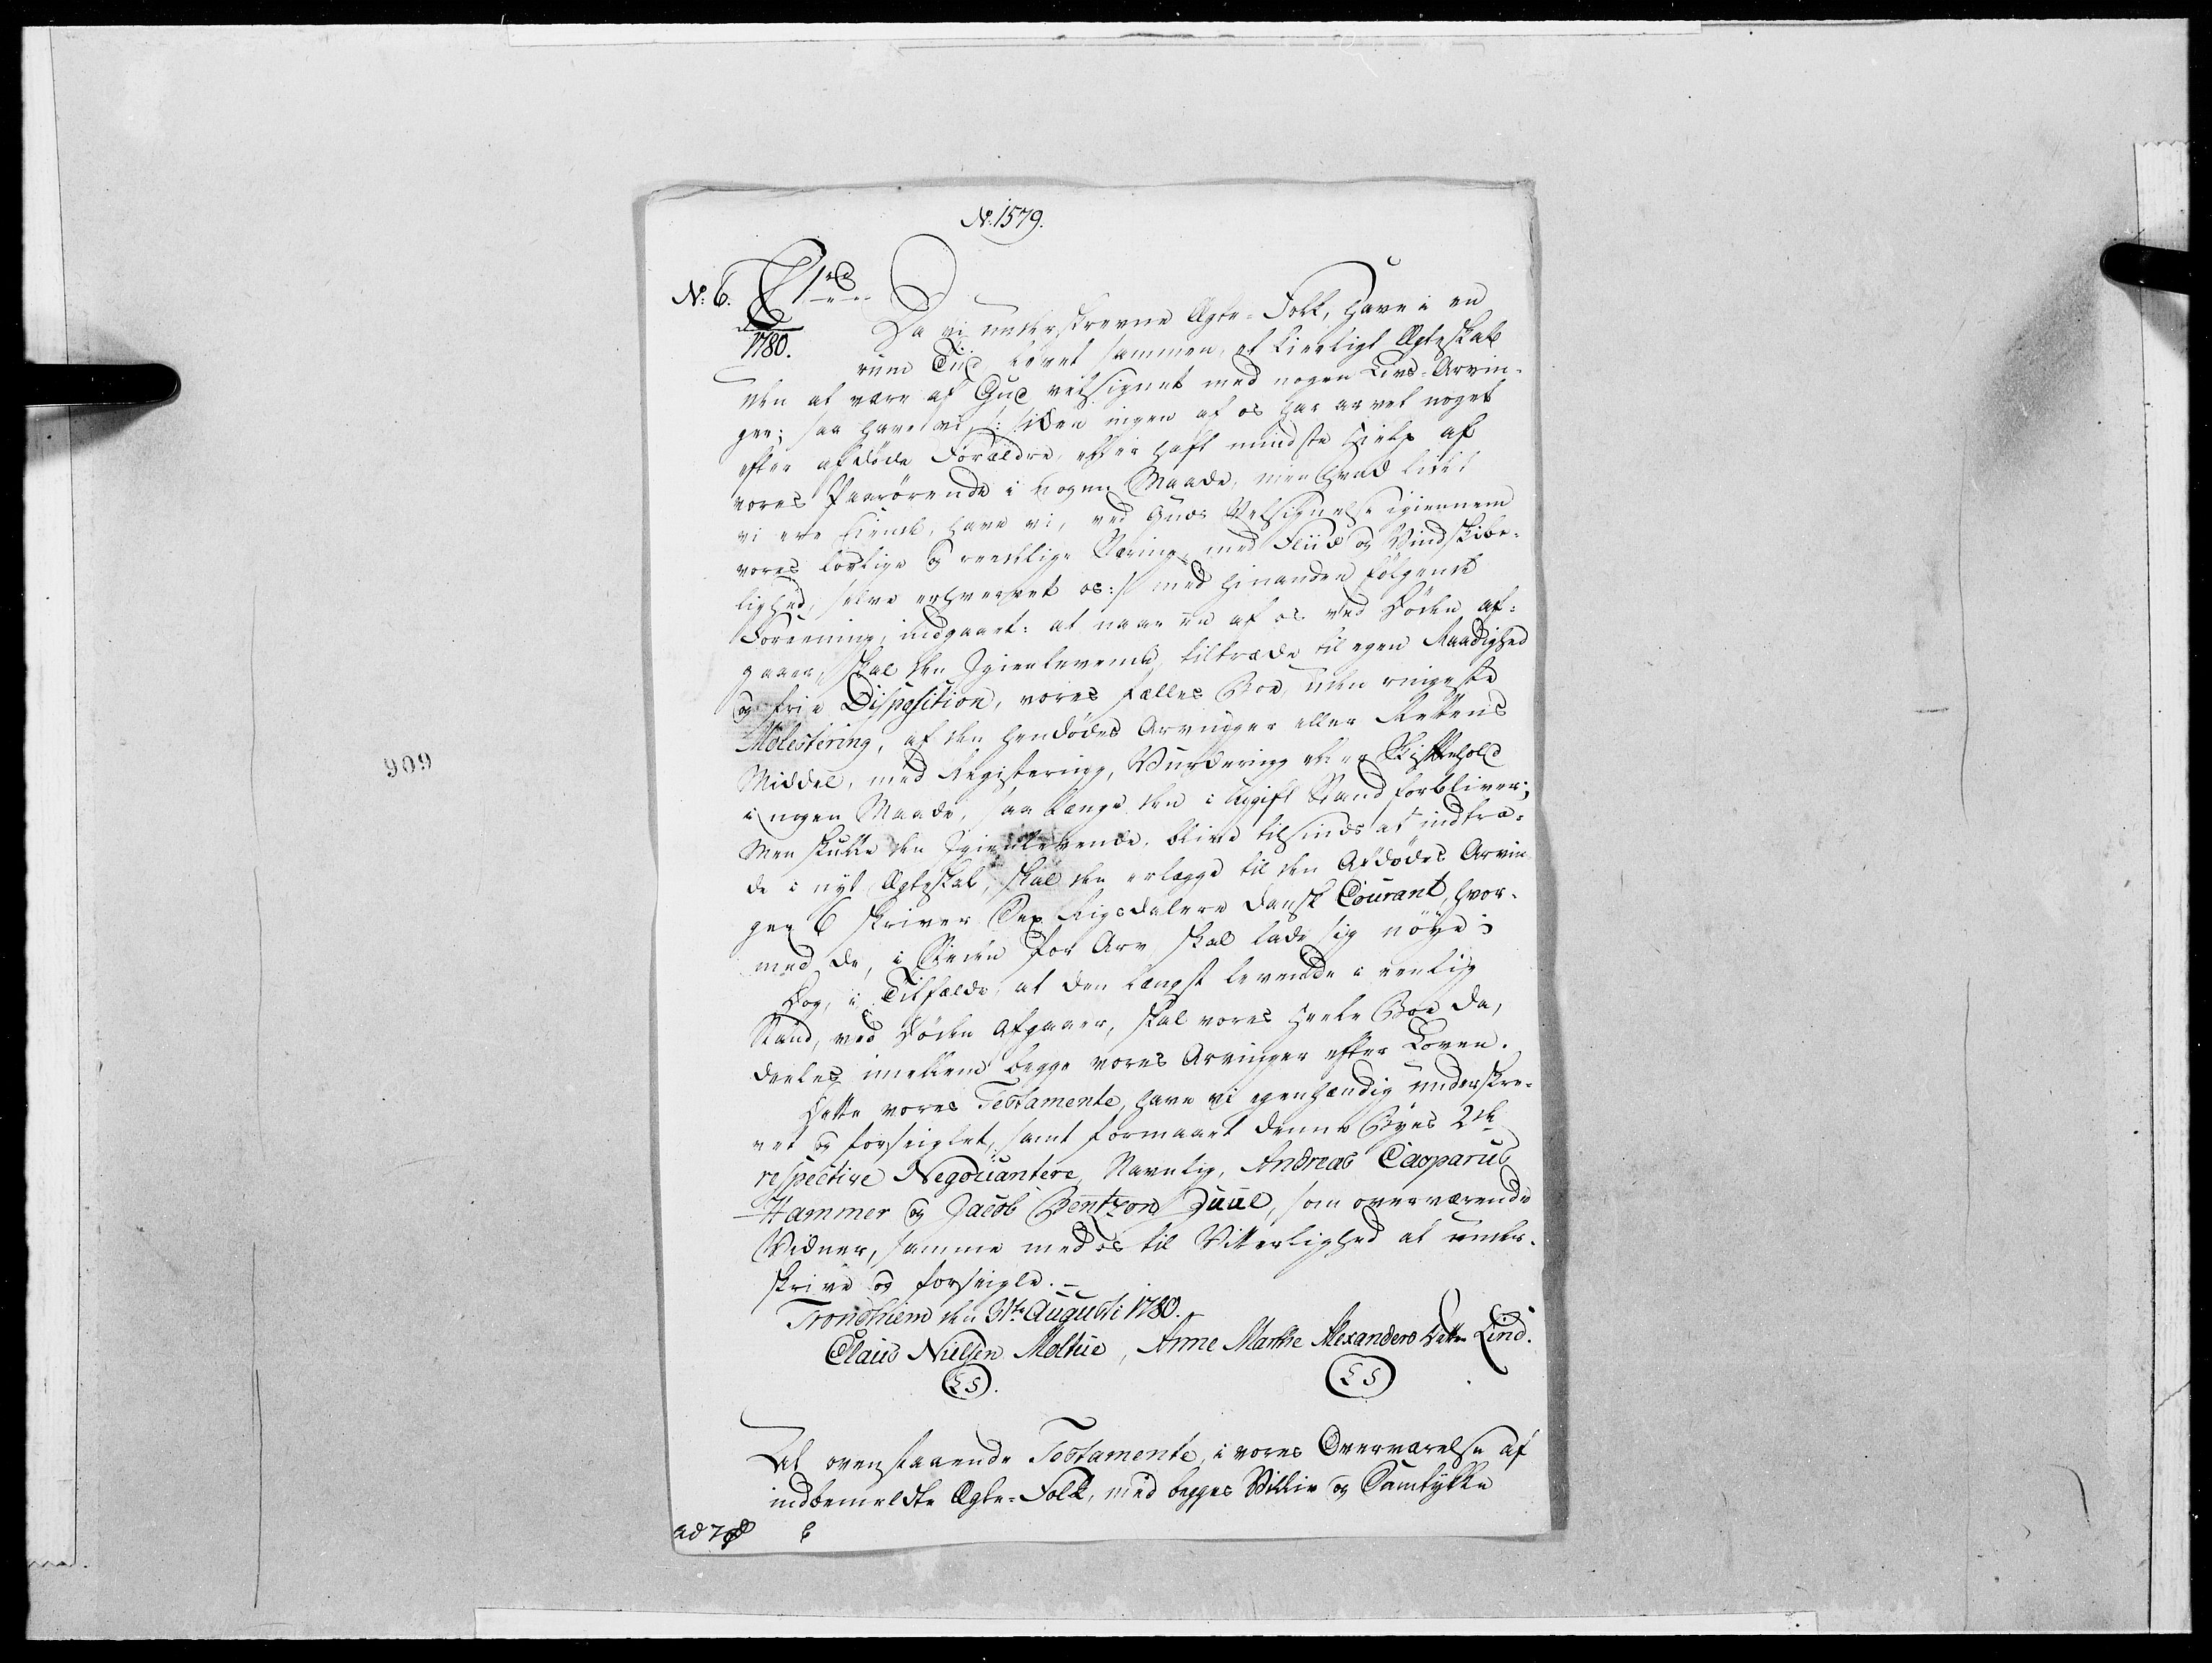 No. 1579.
No. 6.
1780.
Da vi underskrevne Ægte-Folk, have i en
rum Tiid levet sammen, et kierligt Ægteskab
uden at være af Gud velsignet med nogen Livs-Arvin-
ger; saa have vi /: siden ingen af os har arvet noget
efter afdøde Forældre, eller haft mindste Hielp af
vores Paarørende i nogen Maade, men hvad lidet
vi ere Eiende, have vi, ved Guds Velsignelse igiennem
vores lovlige og reedelige Næring, med Fliid og Vindskibe-
lighed, selve erhvervet os :/ med hinanden følgende
Foreening indgaaet: at naar een af os ved Døden af-
gaaer, skal den Igienlevende, tiltræde til egen Raadighed
og frie Disposition, vores fælles Boe, uden ringeste
Molestering, af den hendødes Arvinger eller Rettens
Middel, med Registering, Vurdering eller Skiftehold
i nogen Maade, saa længe den i Uggift Stand forbliver;
Men skulle den Igienlevende blive tilsinds at indtræ-
de i nyt Ægteskab, skal den erlægge til den Afdødes Arvin
ger 6 skriver Sex Rigsdalere dansk Courant, hvor-
med de, i Steden for Arv skal lade sig nöye;
Dog, i Tilfælde, at den længst levende i eenlig
Stand, ved Døden Afgaaer, skal vores heele Boe da,
deeles imellem begge vores Arvinger efter Loven.
Dette vores Testamente, have vi egenhændig underskre-
vet og forseiglet, samt formaaet denne Byes 2de
respective Negoüantere, Navnlig, Andreas Casparus
Hammer og Jacob Bentzon Juul, som overværende
Vidner, samme med os til Vitterlighed at under-
skrive og forseigle.
Trondhiem den 31te Augusti 1780.
Claus Nielsen Moltue, Anne Marthe Alexanders Datter Lind.
LS. LS
At ovenstaaende Testamente, i vores Overværelse af
indbemeldte Ægte-Folk, med begges Villie og Samtykke
909